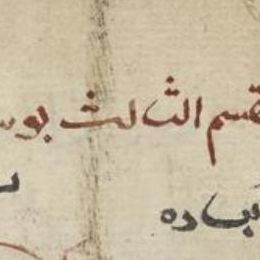 قسم الثالث بوس
بساده